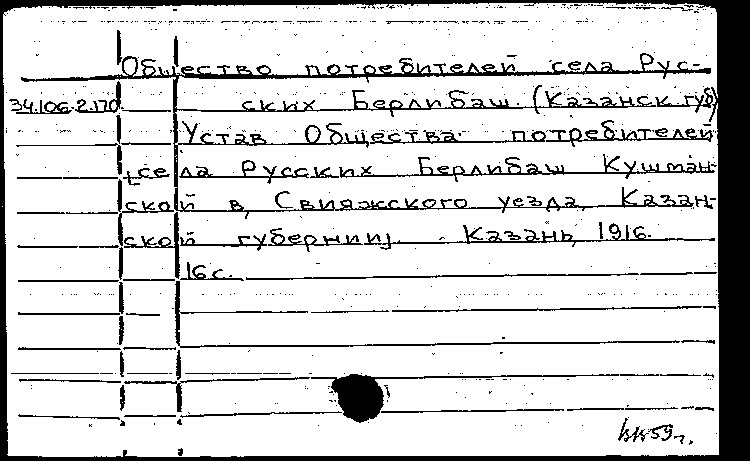 Общество потребителей села Рус-
34.106.2.170 ских Берлибаш (Казанск. губ)
Устав Общества потребителей
[села Русских Берлибаш Кушман-
ской в, Свияжского уезда, Казан-
ской губернии]. Казань, 1916.
16 с.
59 г.